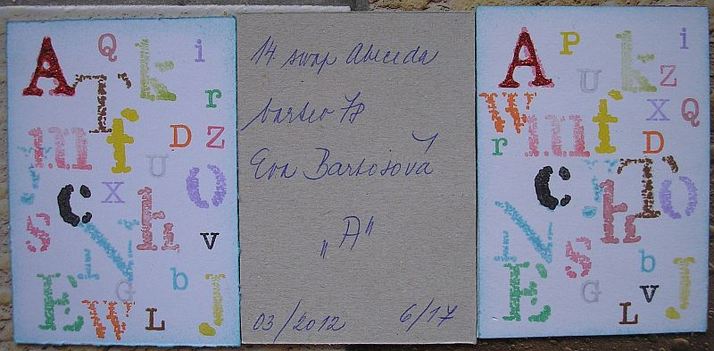 A Q k i
T r
m f D Z
U
C X O
s h v
N
G b
E W L J
14. swap Abeceda
barteo 78
Eva Bartošová
„A"
03/2012 6/17
A P k i
U Z
W m f X Q
r D
C h T O
N s b
E G v J
L